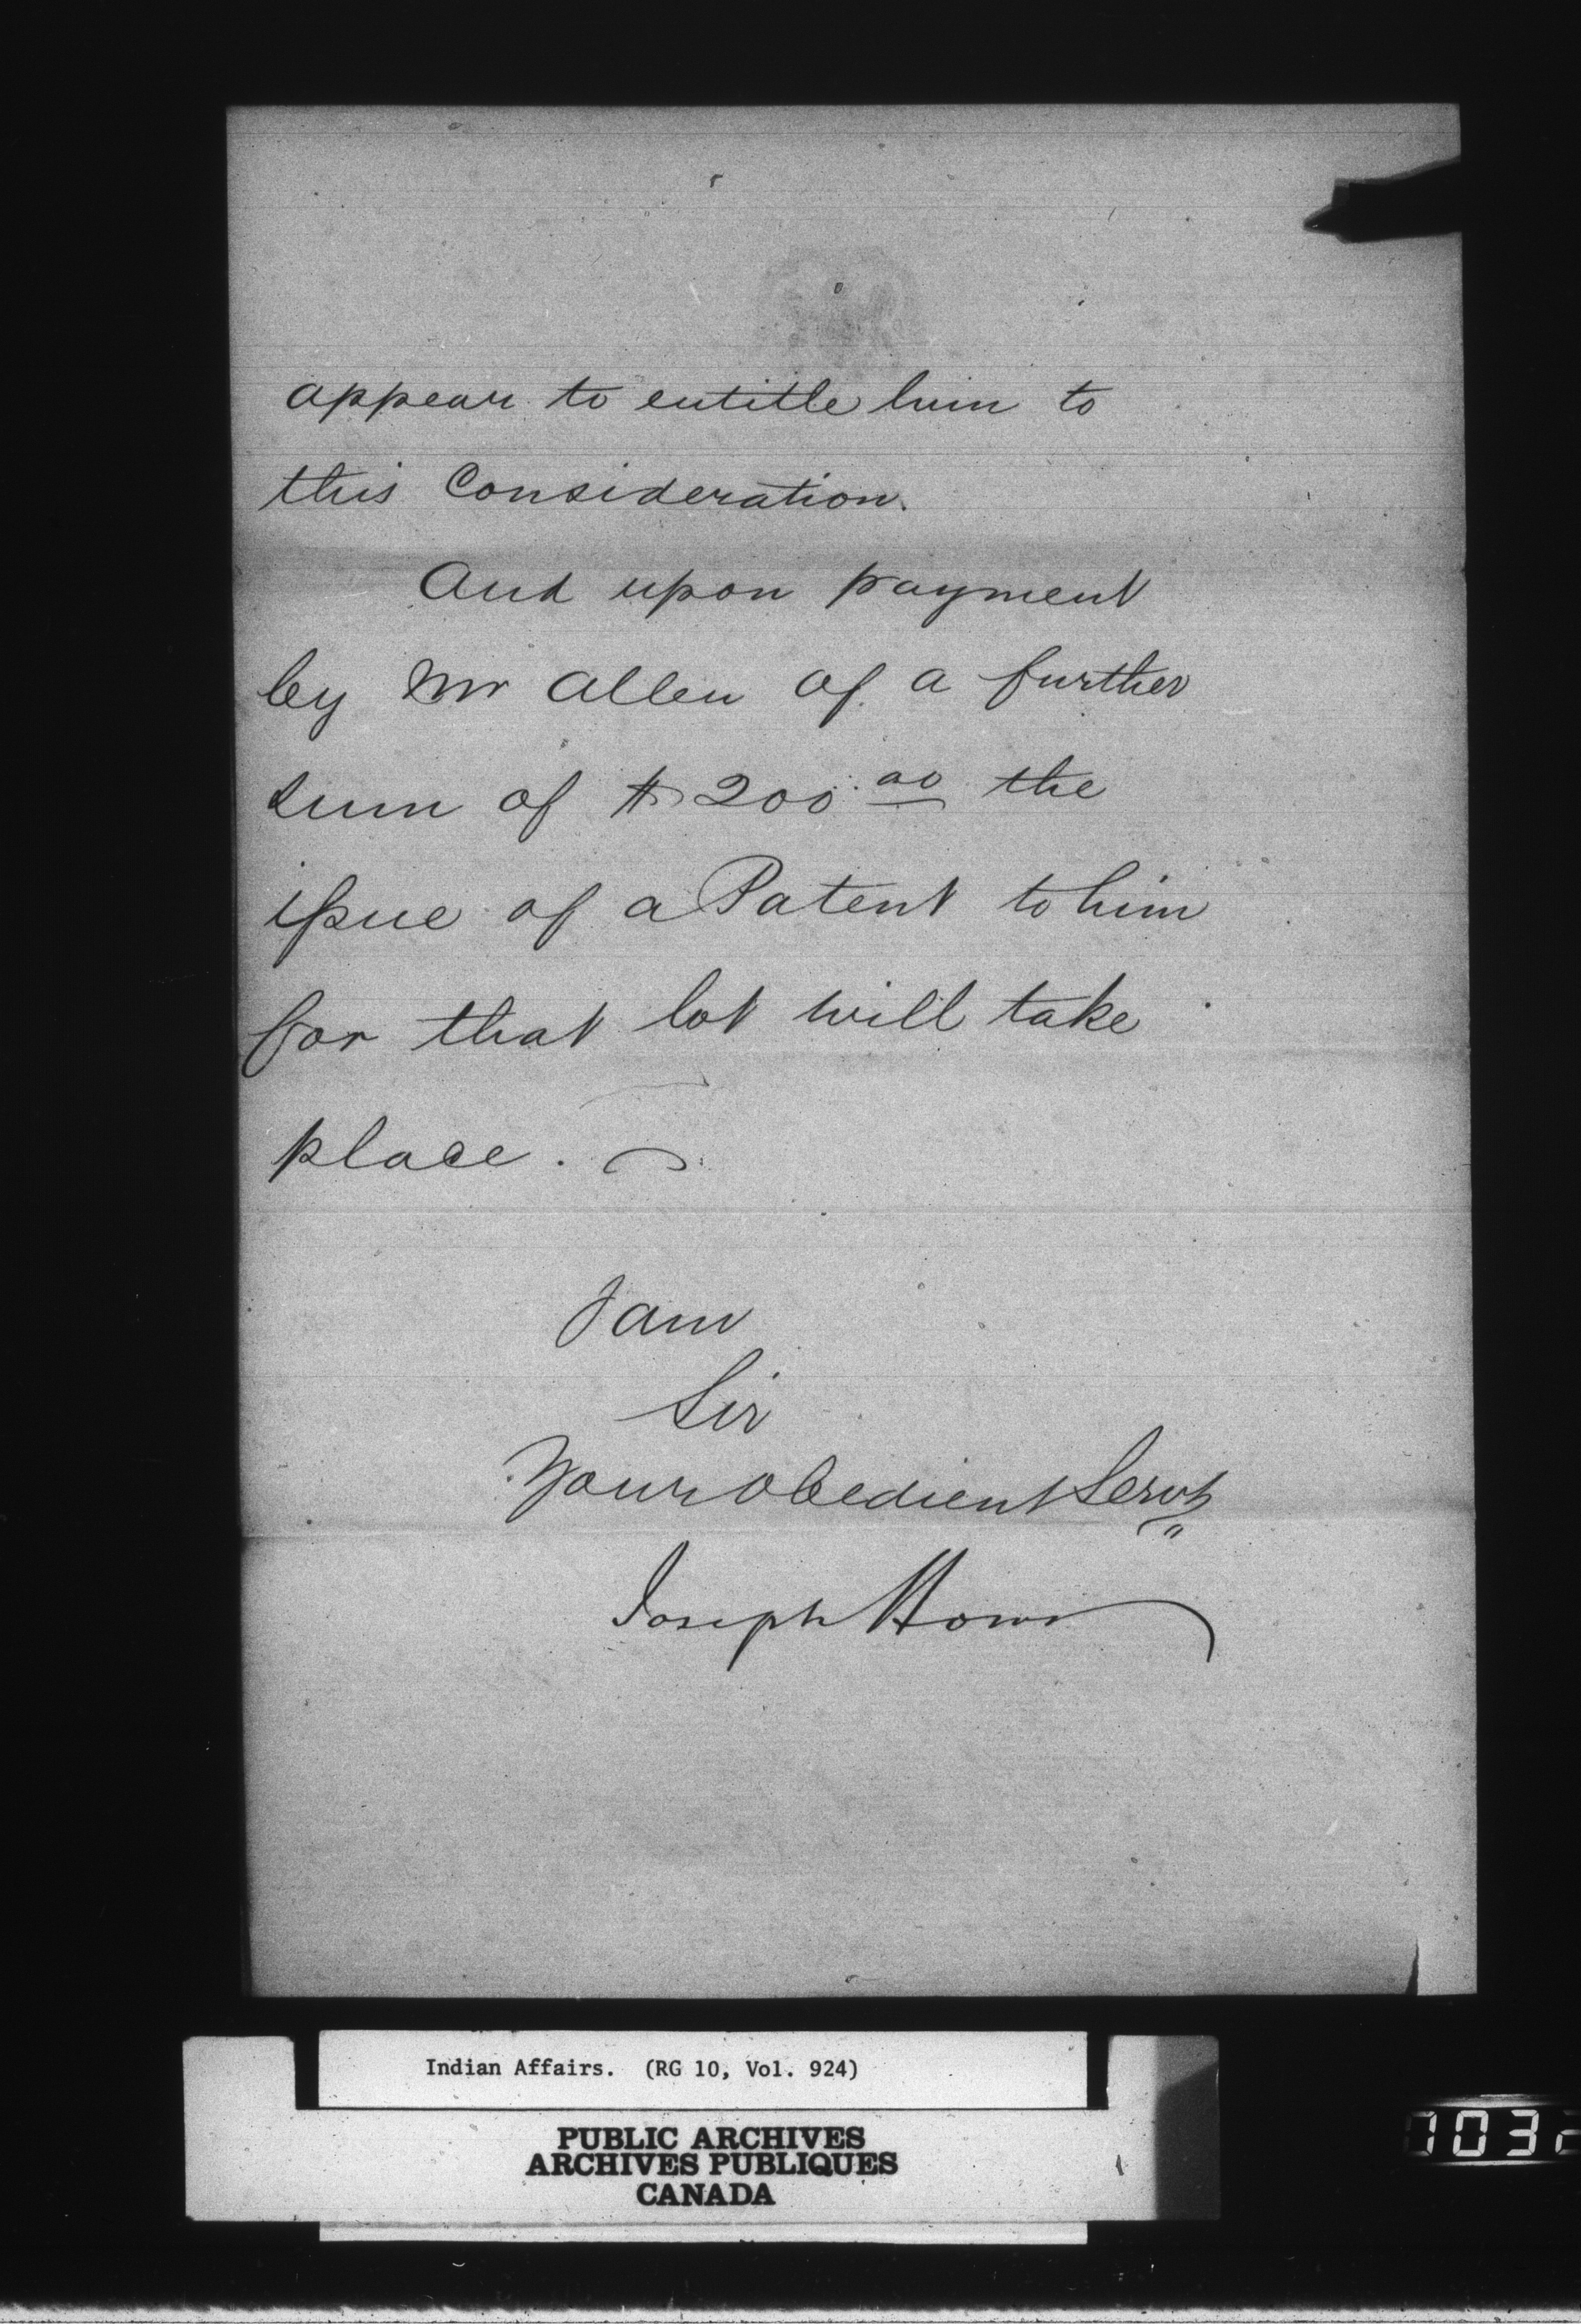 appear to entitle him to
this Consideration.
And upon payment
by Mr Allen of a further
sum of $200.00 the
issue of a Patent to him
for that lot will take
place.
I am
Sir
Your obedient Servt
Joseph Howe
Indian Affairs. (RG 10, Vol. 924)
PUBLIC ARCHIVES
ARCHIVES PUBLIQUES
CANADA